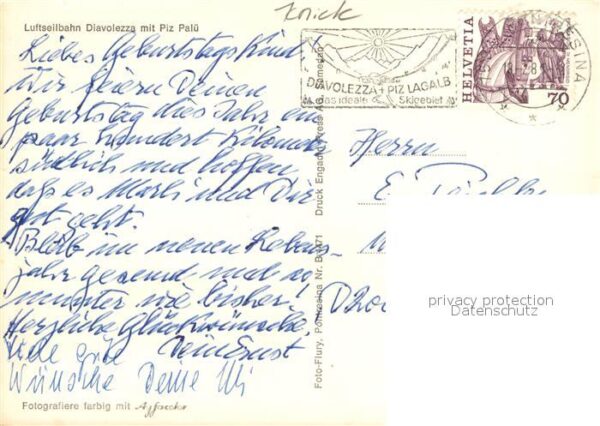 Knick
Luftseilbahn Diavolezza mit Piz Palü
Liebes Geburtstagskind
Wir feiern Deinen
Geburtstag dies Jahr ein
paar hundert Kilometer
südlich und hoffen
dass es Marli und Dir
gut geht.
Bleib im neuen Lebens-
jahr gesund und so
munter wie bisher.
Herzliche Glückwünsche,
Dein Ernst
Viele gute
Wünsche Deine Uli
Fotografiere farbig mit Agfacolor
DIAVOLEZZA + PIZ LAGALB
das ideale Skigebiet
HELVETIA
70
Foto-Flury, Pontresina Nr. Druck Engadin Press AG, Samedan
Herrn
E.
privacy protection
Datenschutz